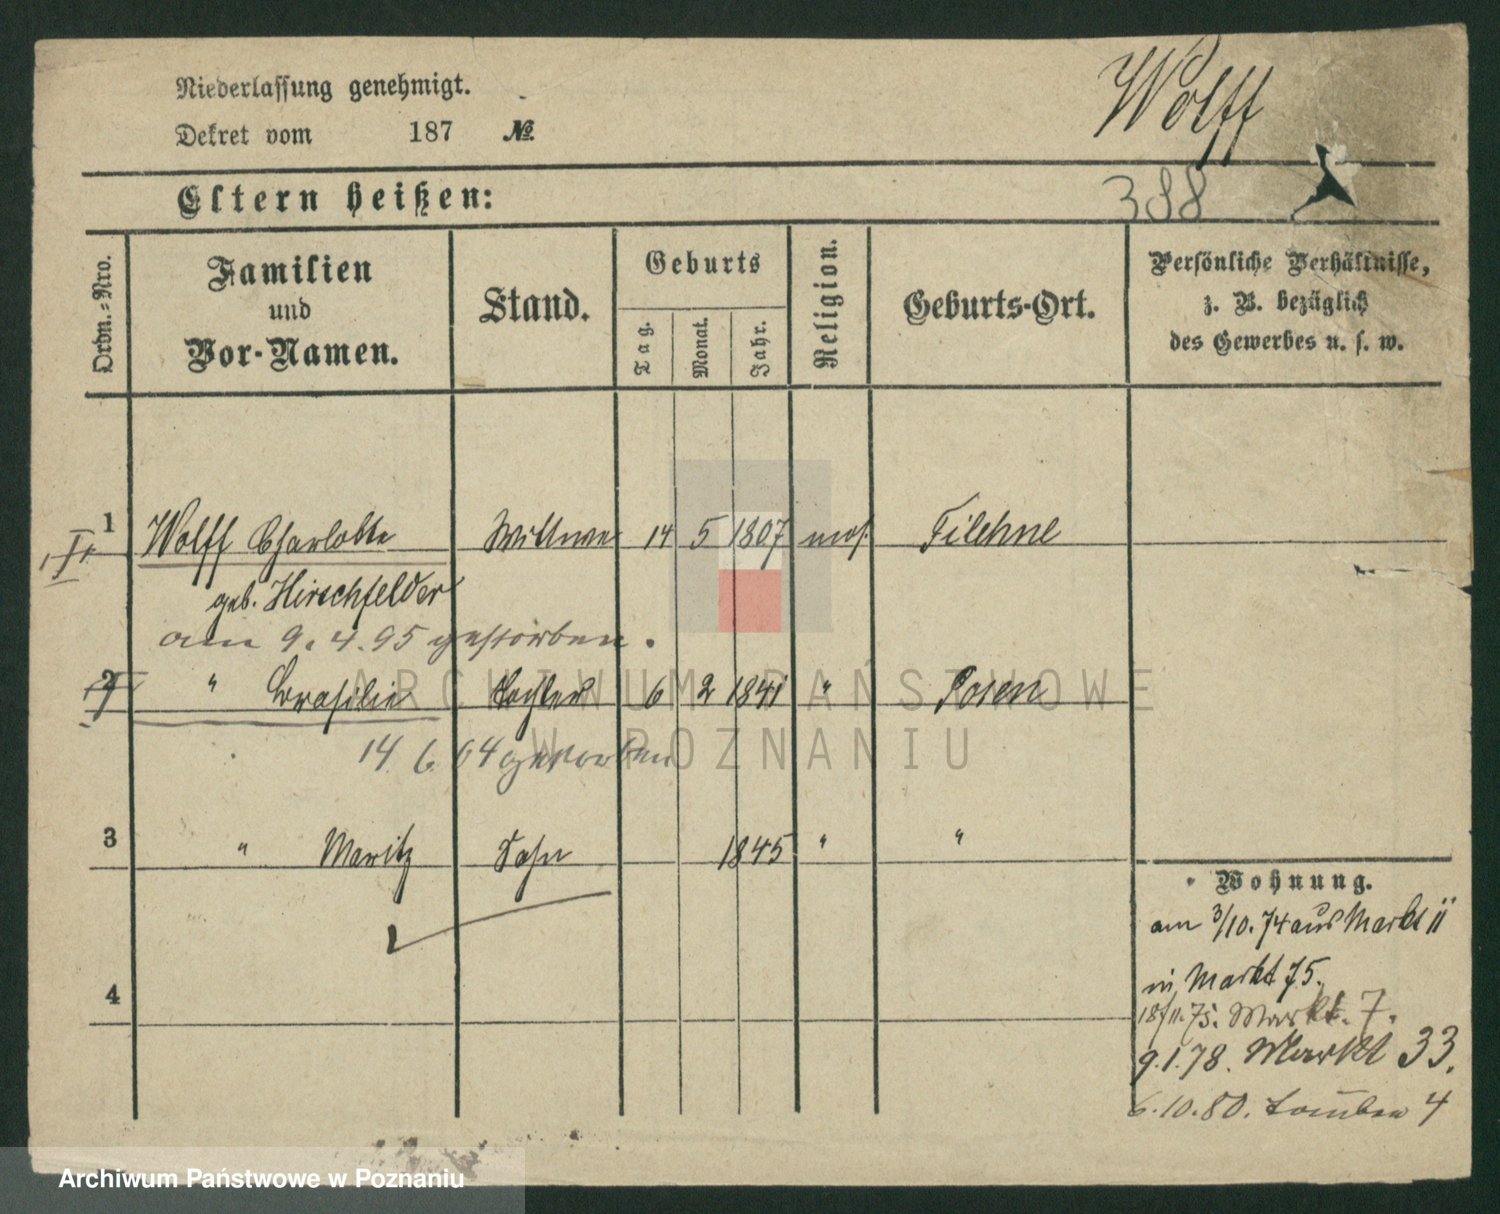 Niederlassung genehmigt.
Wolff
Dekret vom 187 №
Eltern heißen:
388
Ordn.=Nro.
Familien
und
Vor-Namen.
Stand.
Geburts
Tag.
Monat.
Jahr.
Religion.
Geburts-Ort.
Persönliche Verhältnisse,
z. B. bezüglich
des Gewerbes u. s. w.
1 Wolff Charlotte Wittwe 14 5 1807 mos. Filehne
geb. Hirschfelder
am 9. 4. 95 gestorben.
2 " Tochter 6 2 1841 " Posen
14. 6. 64 gestorben
3 " Moritz Sohn 1845 " "
Wohnung.
am 3/10. 74 aus Markt
in Markt 75.
4
18/11. 75. Markt. 7.
9. 1. 78. Markt 33.
6. 10. 80. 4
ARCHIWUM PAŃSTWOWE
W POZNANIU
Archiwum Państwowe w Poznaniu